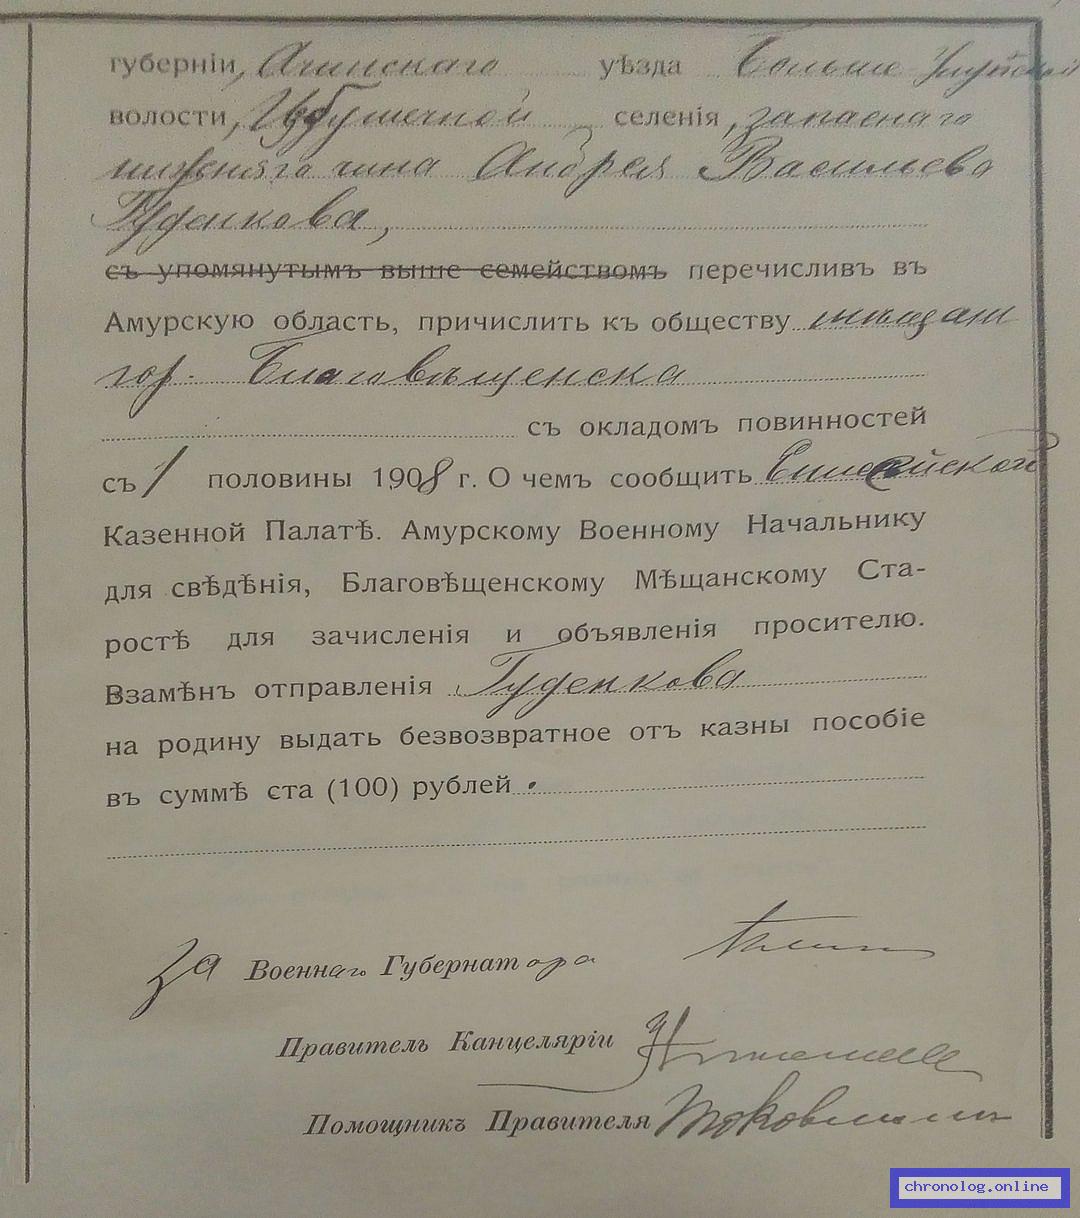 губернiи, Ачинскаго уѣзда Больше-Улуйской
волости, Избушечной селенiя, запаснаго
нижняго чина Андрея Васильева
Гуденкова,
съ упомянутымъ выше семействомъ перечисливъ въ
Амурскую область, причислить къ обществу мѣщан
гор. Благовѣщенска
съ окладомъ повинностей
съ 1 половины 1908 г. О чемъ сообщить Енисейской
Казенной Палатѣ. Амурскому Военному Начальнику
для свѣдѣнiя, Благовѣщенскому Мѣщанскому Ста-
ростѣ для зачисленiя и объявленiя просителю.
Взамѣнъ отправленiя Гуденкова
на родину выдать безвозвратное отъ казны пособiе
въ суммѣ ста (100) рублей.
За Военнаго Губернатора
Правитель Канцелярiи
Помощникъ Правителя
chronolog.online